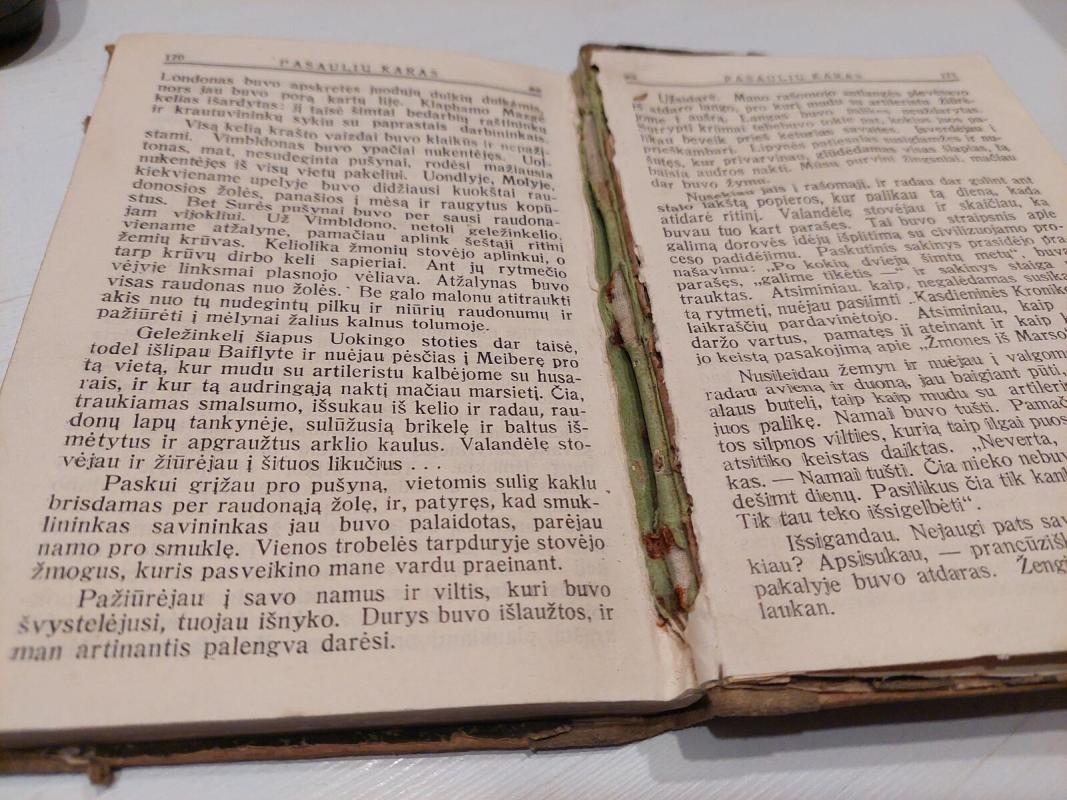 170
PASAULIŲ KARAS
Londonas buvo apskretęs juodųjų dulkių dulkėmis,
nors jau buvo porą kartų liję. Klaphamo Mazgė
kelias išardytas: jį taisė šimtai bedarbių raštininkų
ir krautuvininkų sykiu su paprastais darbininkais.
Visą kelią krašto vaizdai buvo klaikūs ir nepaži-
stami. Vimbldonas buvo ypačiai nukentėjęs. Uol-
tonas, mat, nesudeginta pušynai, rodėsi mažiausia
nukentėjęs iš visų vietų pakeliui. Uondlyje, Molyje,
kiekviename upelyje buvo didžiausi kuokštai rau-
donosios žolės, panašios į mėsą ir raugytus kopū-
stus. Bet Surės pušynai buvo per sausi raudona-
jam vijokliui. Už Vimbldono, netoli geležinkelio,
viename atžalyne, pamačiau aplink šeštąjį ritinį
žemių krūvas. Keliolika žmonių stovėjo aplinkui, o
tarp krūvų dirbo keli sapieriai. Ant jų rytmečio
vėjyje linksmai plasnojo vėliava. Atžalynas buvo
visas raudonas nuo žolės. Be galo malonu atitraukti
akis nuo tų nudegintų pilkų ir niūrių raudonumų ir
pažiūrėti į mėlynai žalius kalnus tolumoje.
Geležinkelį šiapus Uokingo stoties dar taisė,
todel išlipau Baiflyte ir nuėjau pėsčias į Meiberę pro
tą vietą, kur mudu su artileristu kalbėjome su husa-
rais, ir kur tą audringają naktį mačiau marsietį. Čia,
traukiamas smalsumo, išsukau iš kelio ir radau, rau-
donų lapų tankynėje, sulūžusią brikelę ir baltus iš-
mėtytus ir apgraužtus arklio kaulus. Valandėlę sto-
vėjau ir žiūrėjau į šituos likučius . . .
Paskui grįžau pro pušyną, vietomis sulig kaklu
brisdamas per raudonąją žolę, ir, patyręs, kad smuk-
lininkas savininkas jau buvo palaidotas, parėjau
namo pro smuklę. Vienos trobelės tarpduryje stovėjo
žmogus, kuris pasveikino mane vardu praeinant.
Pažiūrėjau į savo namus ir viltis, kuri buvo
švystelėjusi, tuojau išnyko. Durys buvo išlaužtos, ir
man artinantis palengva darėsi.
PASAULIŲ KARAS
171
Užsidarė. Mano rašomojo antlangės plevėsavo
iš atdaro lango, pro kurį mudu su artileristu žiūrė-
jome į aušrą. Langas buvo paliktas neuždarytas.
Sutrypti krūmai tebebuvo tokie pat, kokius juos pa-
likau beveik prieš keturias savaites. Įsverdėjau į
prieškambarį. Lipynės patiesalas susiglamžęs ir nu-
šutęs, kur privarvinau, gliūdėdamas visas šlapias, tą
baisią audros naktį. Mūsų purvini žingsniai, mačiau
dar buvo žymu.
Nusekiau jais į rašomąjį, ir radau dar gulint ant
stalo lakštą popieros, kur palikau tą dieną, kada
atidarė ritinį. Valandėlę stovėjau ir skaičiau, ką
buvau tuo kart parašęs. Tai buvo straipsnis apie
galimą dorovės idėjų išplitimą su civilizuojamo pro-
ceso padidėjimu. Paskutinis sakinys prasidėjo pra-
našavimu: „Po kokių dviejų šimtų metų“, buvau
parašęs, „galime tikėtis —“ ir sakinys staiga
trauktas. Atsiminiau, kaip, negalėdamas susikaupti
tą rytmetį, nuėjau pasiimti „Kasdieninės Kronikos
laikraščių pardavinėtojo. Atsiminiau, kaip
daržo vartus, pamatęs jį ateinant ir kaip
jo keistą pasakojimą apie „Žmones iš Marso
Nusileidau žemyn ir nuėjau į valgom
radau avieną ir duoną, jau baigiant pūti,
alaus butelį, taip kaip mudu su artileri
juos palikę. Namai buvo tušti. Pamač
tos silpnos vilties, kurią taip ilgai puos
atsitiko keistas daiktas. „Neverta,
kas. — Namai tušti. Čia nieko nebuv
dešimt dienų. Pasilikus čia tik kank
Tik tau teko išsigelbėti“.
Išsigandau. Nejaugi pats sav
kiau? Apsisukau, — prancūzišk
pakalyje buvo atdaras. Žengi
laukan.